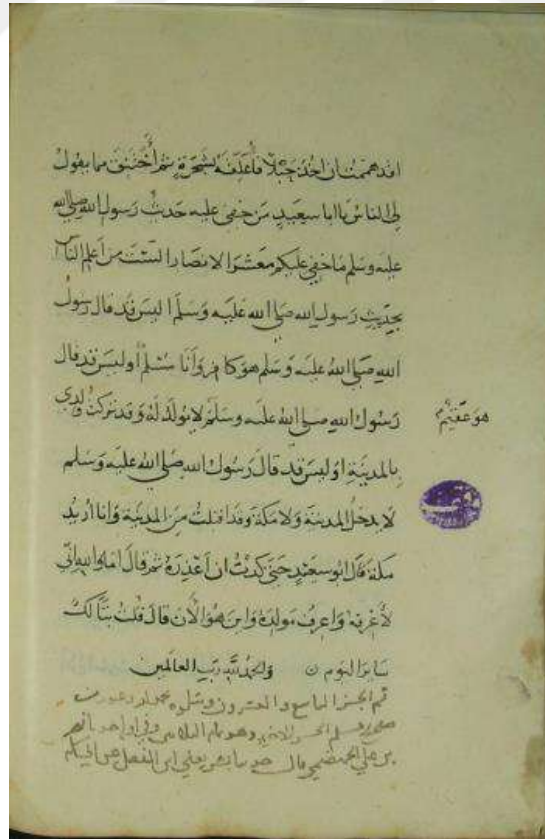 لقد هممت ان اخذ حبلا فاعلقه بشجرة ثم أختنق مما يقول
لي الناس يا ابا سعيد من خفي عليه حديث رسول الله صلى الله
عليه وسلم ما خفي عليكم معشر الانصار الست من اعلم الناس
بحديث رسول الله صلى الله عليه وسلم اليس قد قال رسول
الله صلى الله عليه وسلم هو كافر وأنا مسلم أوليس قد قال
رسول الله صلى الله عليه وسلم لا يولد له وقد تركت ولدي
هو عقيم
بالمدينة اوليس قد قال رسول الله صلى الله عليه وسلم
لا يدخل المدينة ولا مكة وقد اقبلت من المدينة وانا اريد
مكة قال ابو سعيد حتى كدت ان اعذره ثم قال اما والله اني
لأعرفه واعرف مولده واين هو الآن قال قلت تبا لك
سائر اليوم ن والحمد لله رب العالمين
تم الجزء التاسع والعشرون ويتلوه
صحيح مسلم الجزء وهو تمام الثلاثين وفي اوله نصر
بن علي الجهضمي قال حدثنا بشر يعني ابن المفضل عن